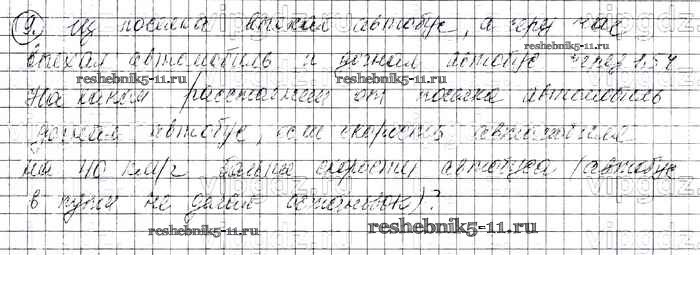 9. Из поселка выехал автобус, а через час
выехал автомобиль и догнал автобус через 1,5 ч
reshebnik5-11.ru
reshebnik5-11.ru
На каком расстоянии от поселка автомобиль
догнал автобус, если скорость автомобиля
на 40 км/ч больше скорости автобуса (автобус
в пути не делал остановок)?
reshebnik5-11.ru
reshebnik5-11.ru